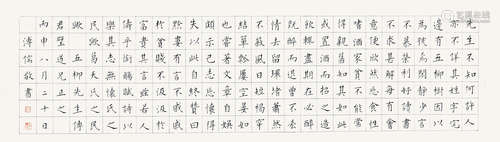 先生不知何許人
亦不詳其姓字宅
邊有五柳樹因以
為號焉閑靖少言
不慕榮利好讀書
不求甚解每有會
意便欣然忘食性
嗜酒家貧不能常
得親舊知其如此
或置酒而招之造
飲輒盡期在必醉
既醉而退曾不吝
情去留環堵蕭然
不蔽風日短褐穿
結簞瓢屢空晏如
也常著文章自娛
頗示己志忘懷得
失以此自終贊曰
黔婁有言不戚戚
於貧賤不汲汲於
富貴其言茲若人之
儔乎銜觴賦詩以
樂其志無懷氏之
民歟葛天氏之民
歟
五柳先生
君璧
丙申八月二十日
溥儒敬書